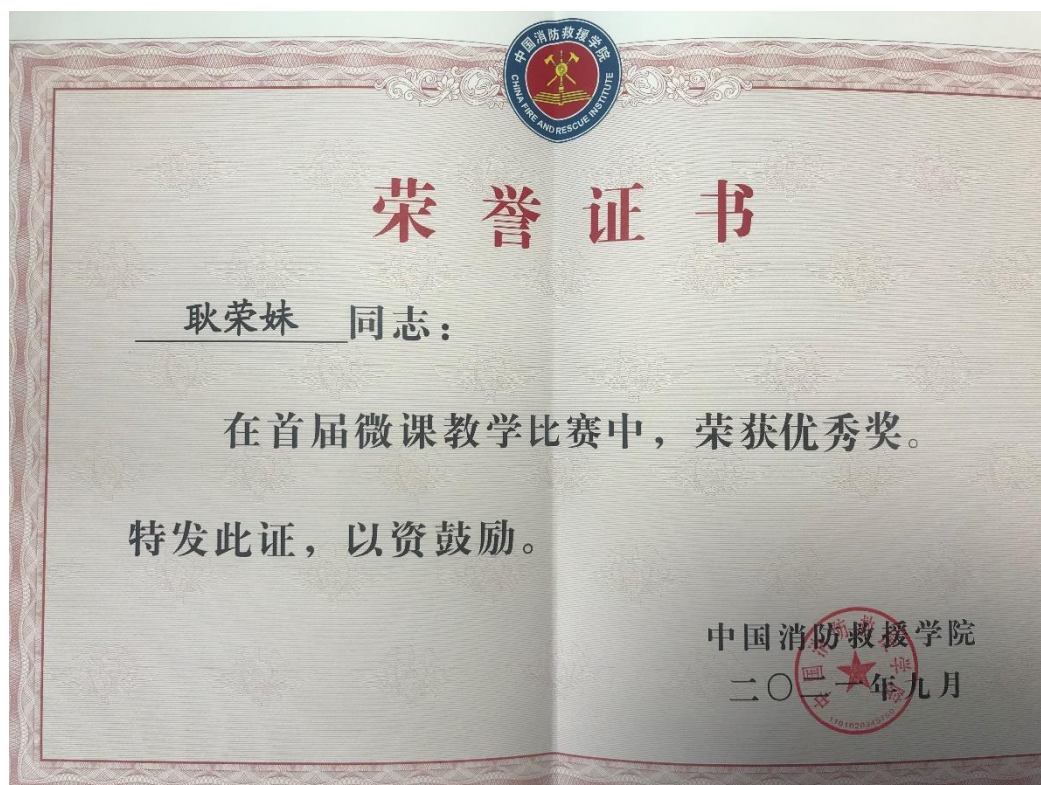 中国消防救援学院
CHINA FIRE AND RESCUE INSTITUTE
荣誉证书
耿荣妹 同志：
在首届微课教学比赛中，荣获优秀奖。
特发此证，以资鼓励。
中国消防救援学院
二〇二一年九月
中国消防救援学院